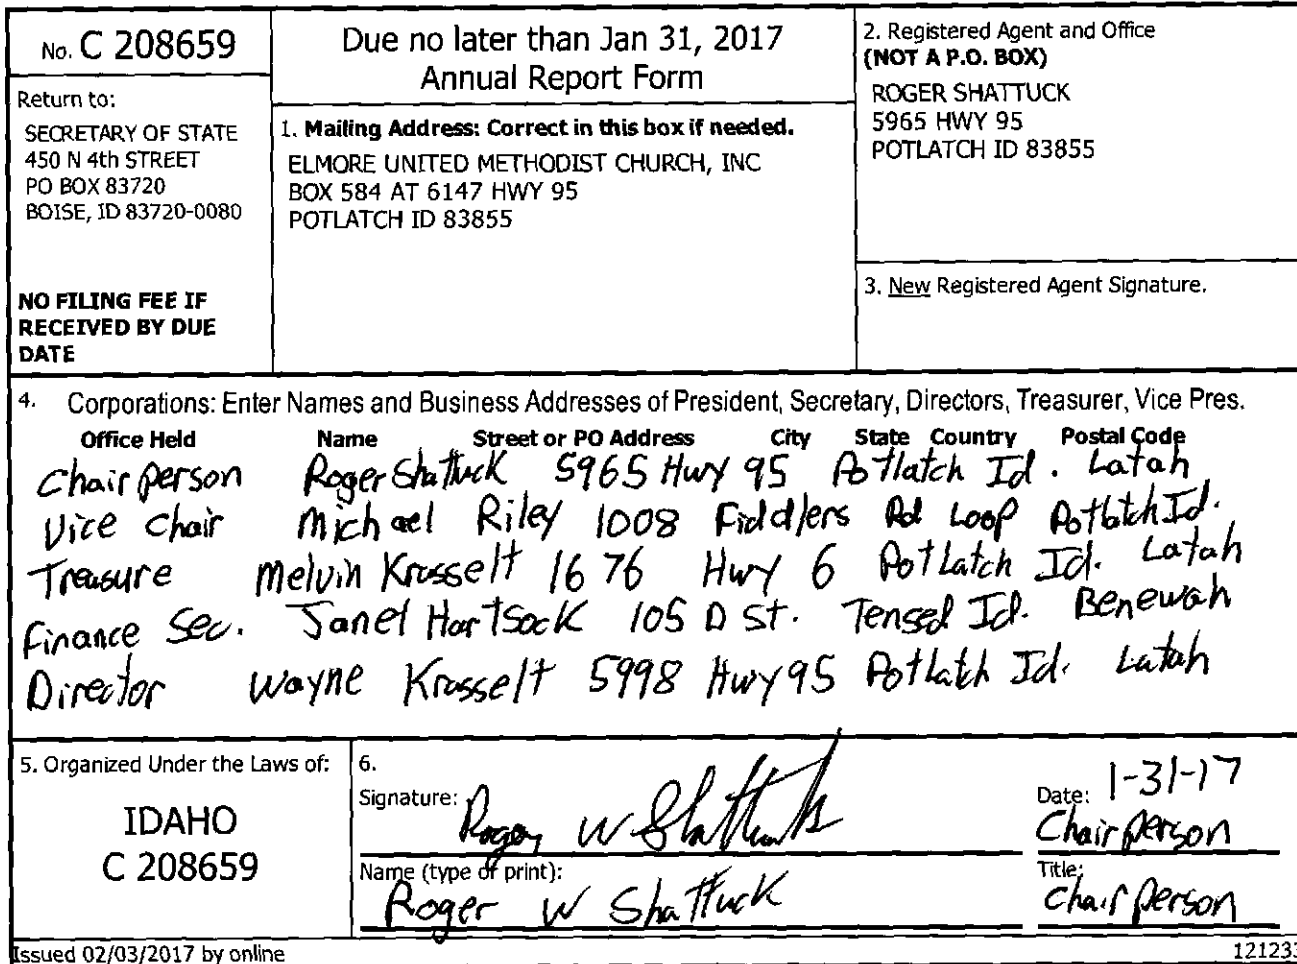 No. C 208659
Due no later than Jan 31, 2017
Annual Report Form
Return to:
SECRETARY OF STATE
450 N 4th STREET
PO BOX 83720
BOISE, ID 83720-0080
NO FILING FEE IF
RECEIVED BY DUE
DATE
1. Mailing Address: Correct in this box if needed.
ELMORE UNITED METHODIST CHURCH, INC
BOX 584 AT 6147 HWY 95
POTLATCH ID 83855
2. Registered Agent and Office
(NOT A P.O. BOX)
ROGER SHATTUCK
5965 HWY 95
POTLATCH ID 83855
3. New Registered Agent Signature.
4. Corporations: Enter Names and Business Addresses of President, Secretary, Directors, Treasurer, Vice Pres.
Office Held Name Street or PO Address City State Country Postal Code
Chairperson Roger Shattuck 5965 Hwy 95 Potlatch Id. Latah
Vice Chair Michael Riley 1008 Fiddlers Rd Loop Potlatch Id.
Treasure Melvin Krasselt 1676 Hwy 6 Potlatch Id. Latah
Finance Sec. Janet Hartsock 105 D St. Tensed Id. Benewah
Director Wayne Krasselt 5998 Hwy 95 Potlatch Id. Latah
5. Organized Under the Laws of:
IDAHO
C 208659
6.
Signature: Roger W Shattuck
Date: 1-31-17
Chairperson
Name (type or print):
Roger W Shattuck
Title:
Chairperson
Issued 02/03/2017 by online
121233